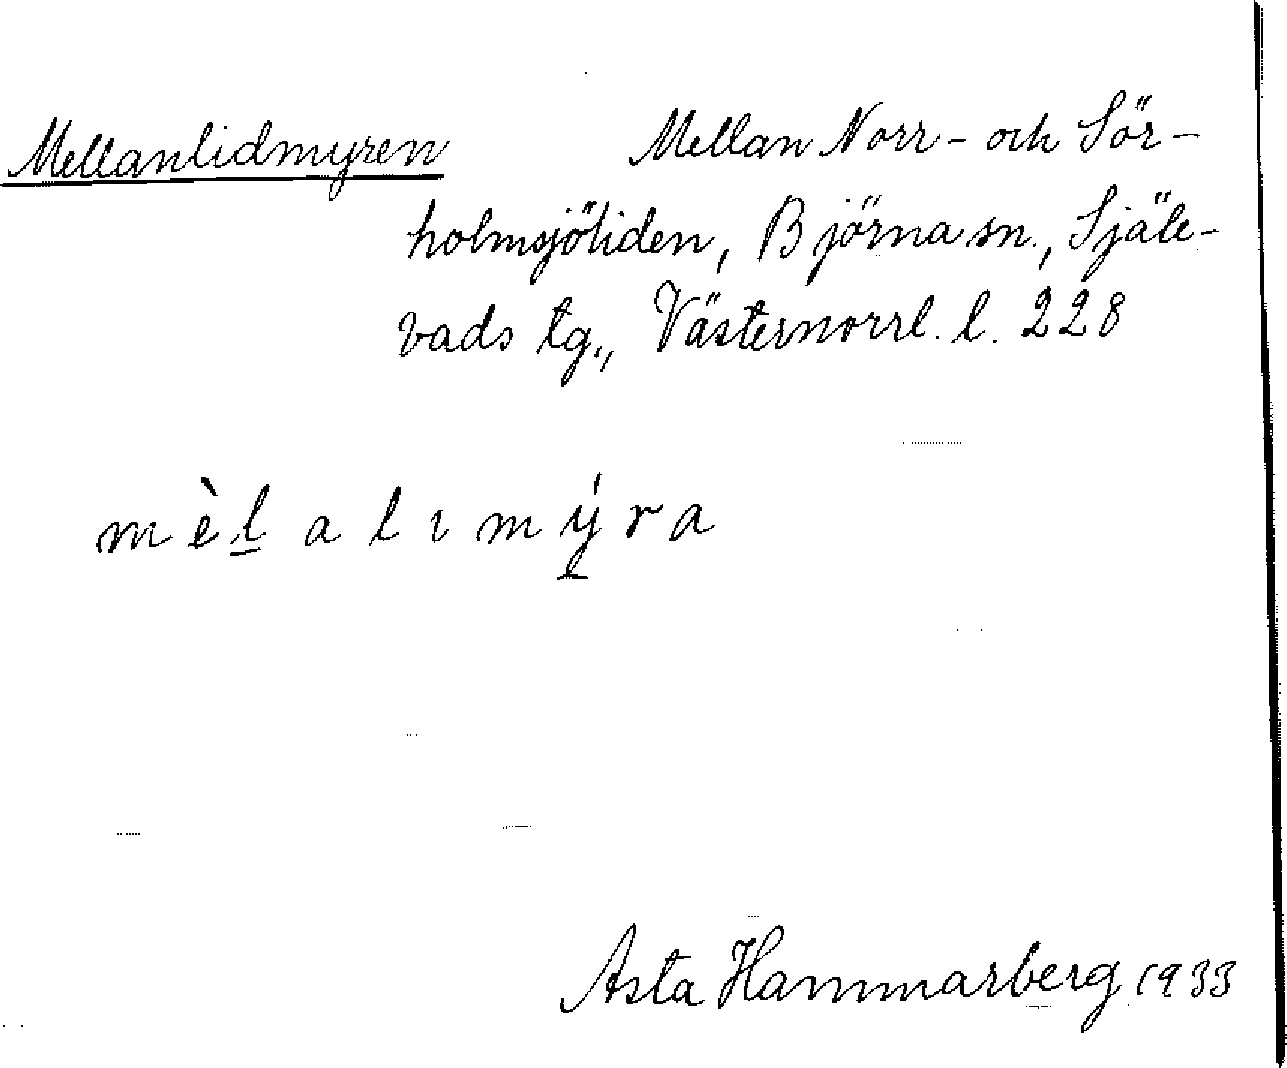 Mellanlidmyren Mellan Norr- och Sör-
holmsjöliden, Björna sn., Själe-
vads tg., Västernorrl. l. 228
mèl̲ a l ı m ý̲ r a
Asta Hammarberg 1933